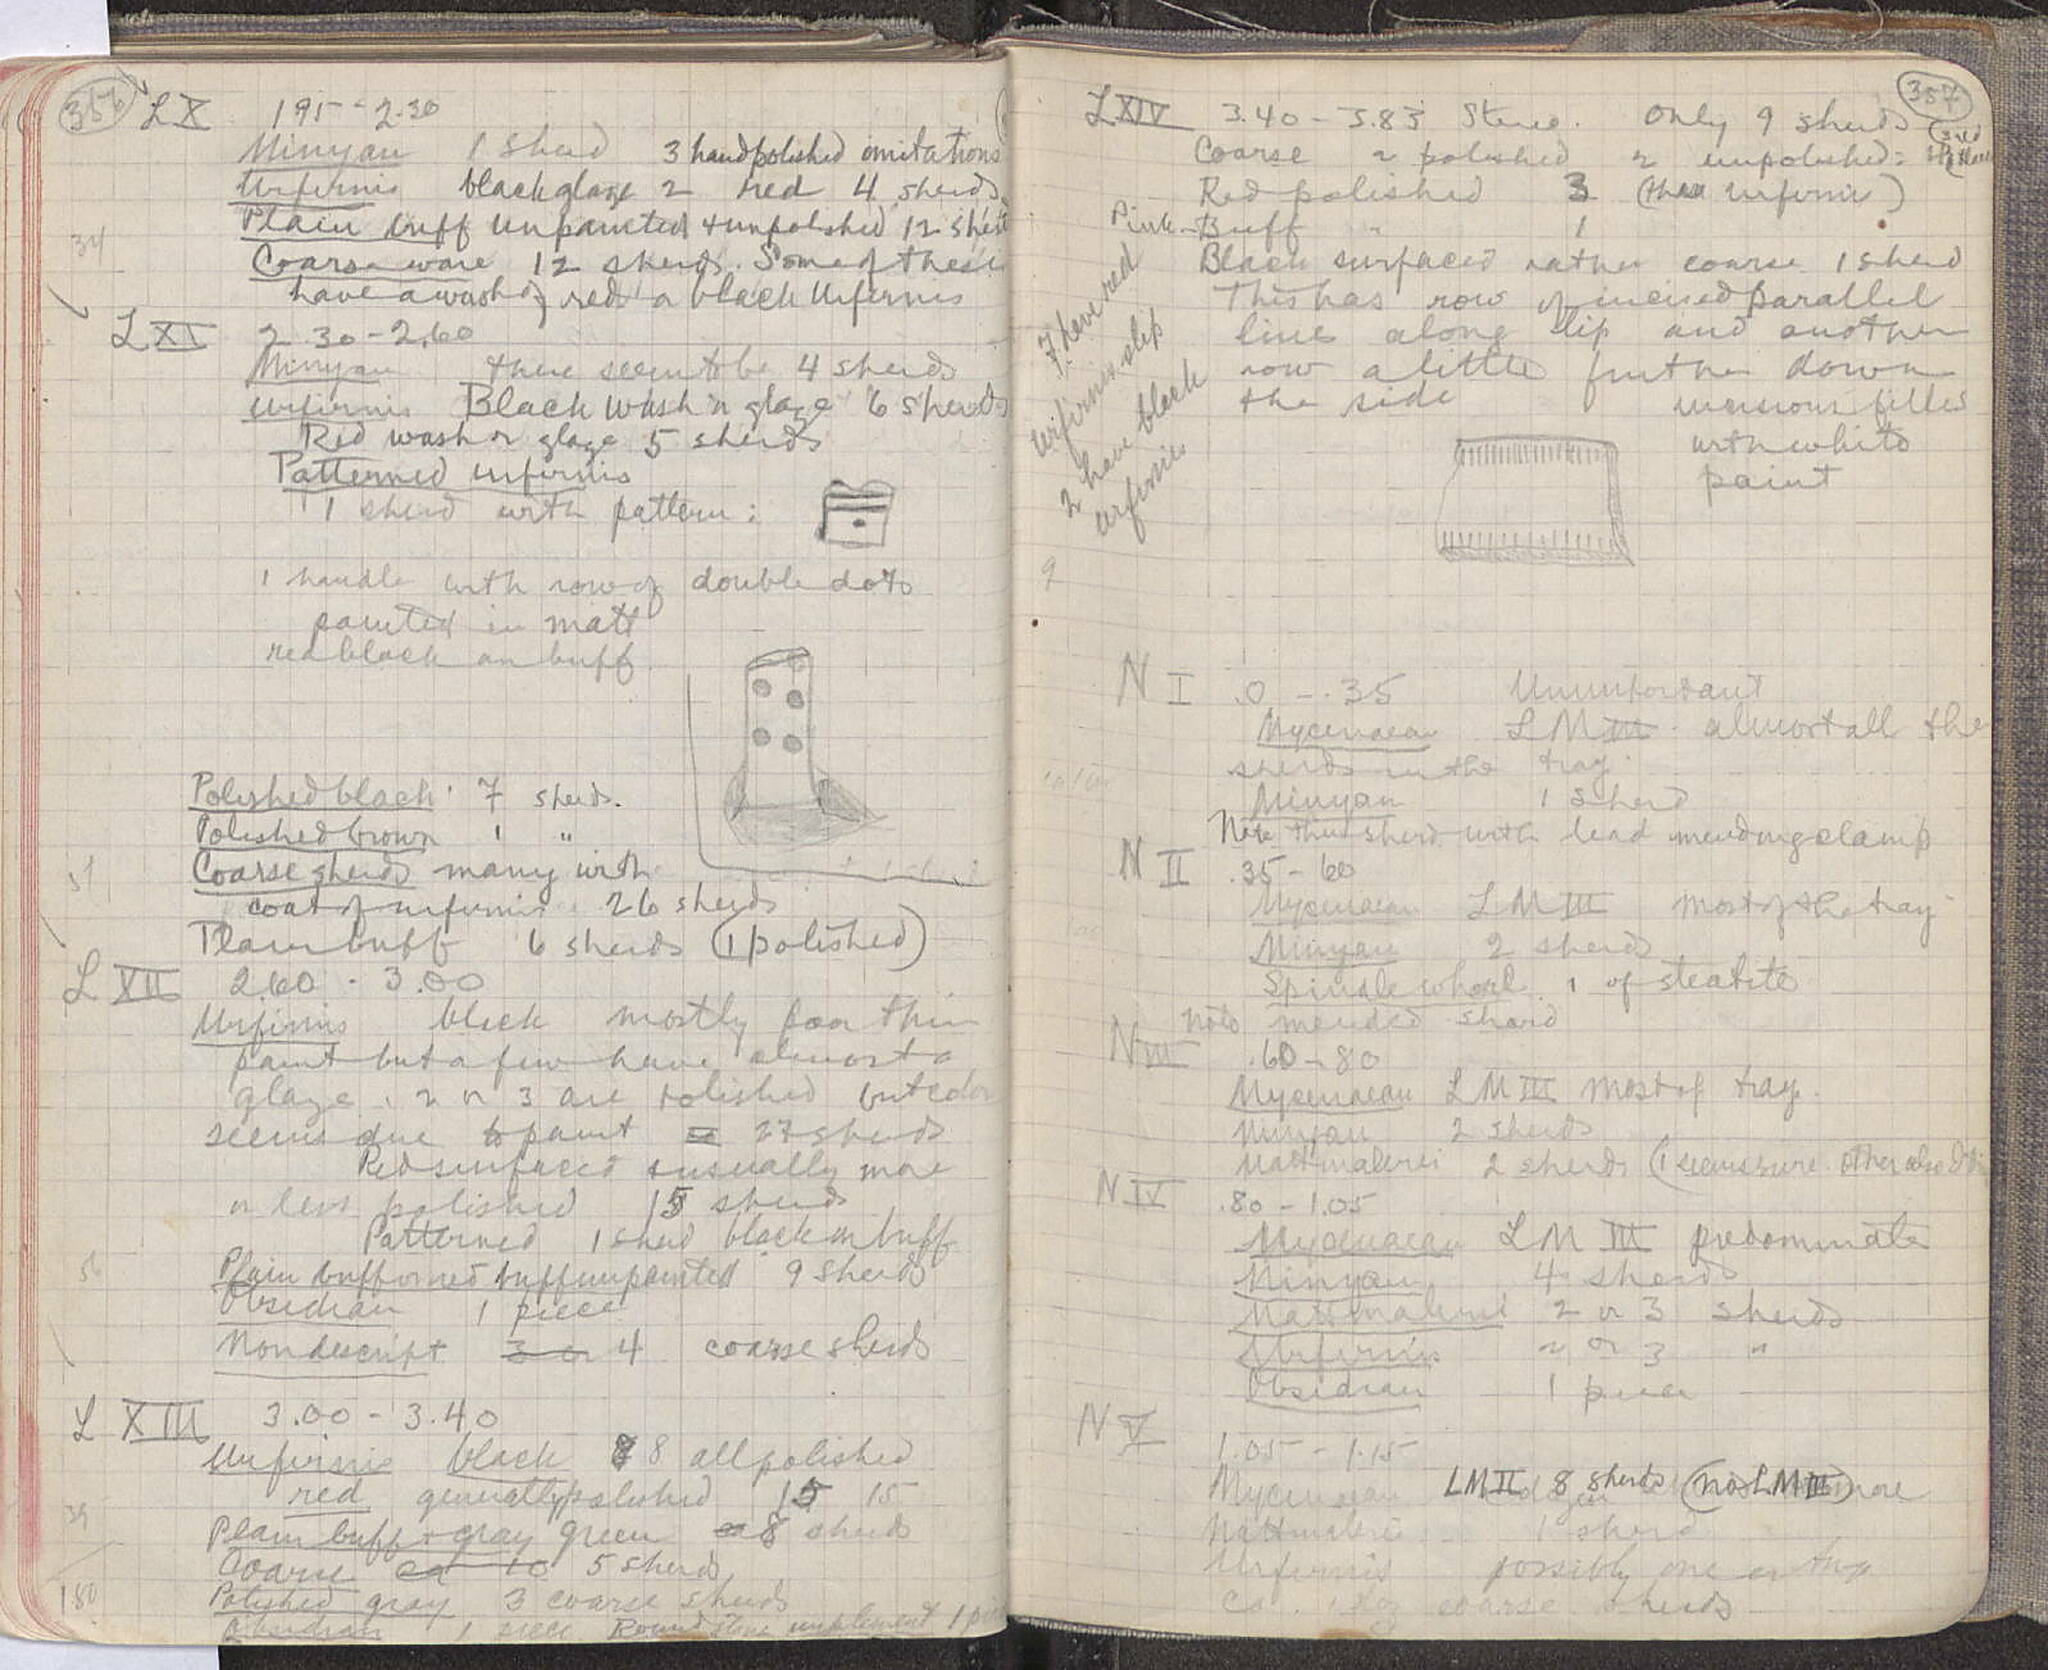 356
L X 195 - 2.30
Minyan 1 sherd 3 handpolished imitations
Urfirnis black glaze 2 red 4 sherds
Plain buff unpainted + unpolished 12 sherds
34
Coarse ware 12 sherds. Some of these
have a wash of red or black Urfirnis
L XI 2.30 - 2.60
Minyan there seem to be 4 sherds
Urfirnis Black wash or glaze 6 sherds
Red wash or glaze 5 sherds
Patterned urfirnis
1 sherd with pattern:
1 handle with row of double dots
painted in matt
red black on buff
Polished black 7 sherds.
Polished brown 1 "
Coarse sherds many with
51
coat of urfirnis 26 sherds
Plain buff 6 sherds (1 polished)
L XII 2.60 - 3.00
Urfirnis black mostly poor thin
paint but a few have almost a
glaze. 2 or 3 are polished but color
seems due to paint 27 sherds
Red surfaced usually more
or less polished 15 sherds
Patterned 1 sherd black on buff
56
Plain buff unpainted 9 sherds
Obsidian 1 piece
Nondescript 3 or 4 coarse sherds
L XIII 3.00 - 3.40
Urfirnis black 8 all polished
red generally polished 15 15
39
Plain buff + gray green 8 sherds
Coarse ca 10 5 sherds
180
Polished gray 3 coarse sherds
Obsidian 1 piece Round stone implement 1
357
L XIV 3.40 - 3.83 Stereo. Only 9 sherds
Coarse 2 polished 2 unpolished:
Red polished 3 (these urfirnis)
Pink-Buff " 1
Black surfaced rather coarse 1 sherd
This has row of incised parallel
lines along lip and another
row a little further down
the side
incisions filled
with white
paint
7 have red
urfirnis slip
2 have black
urfirnis
9
N I .0 - .35 Unimportant
Mycenaean LM III almost all the
sherds in the tray.
Minyan 1 sherd
Note this sherd with lead mending clamp
N II .35 - 60
Mycenaean LM III most of the tray
Minyan 2 sherds
Spindle whorl 1 of steatite
Note mended sherd
N III .60 - 80
Mycenaean LM III most of tray.
Minyan 2 sherds
Mattmalerei 2 sherds (1 seems sure. other also
N IV .80 - 1.05
Mycenaean LM III predominate
Minyan 4 sherds
Mattmalerei 2 or 3 sherds
Urfirnis 2 or 3 "
Obsidian 1 piece
N V 1.05 - 1.15
Mycenaean LM II 8 sherds (no LM III) more
Mattmalerei 1 sherd
Urfirnis possibly one or two
Ca. coarse sherds